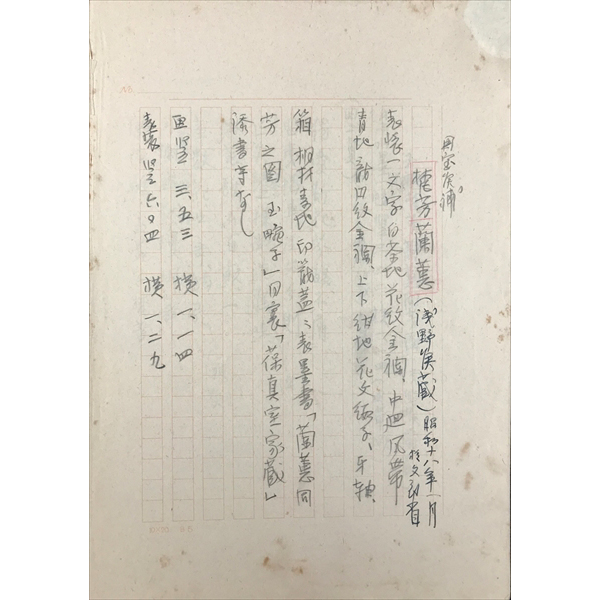 国宝候補
梵芳蘭蕙(浅野侯蔵)昭和十八年一月
於文部省
表装一文字白茶地花紋金襴、中廻風帯
青地龍田紋金襴、上下紺地花文緞子、牙軸
箱桐材素地印籠蓋、表墨書「蘭蕙同
芳之図 玉畹子」同裏「葆真室家蔵」
添書等なし
画竪三、五三 横一、一四
表装竪六、〇四 横一、二九